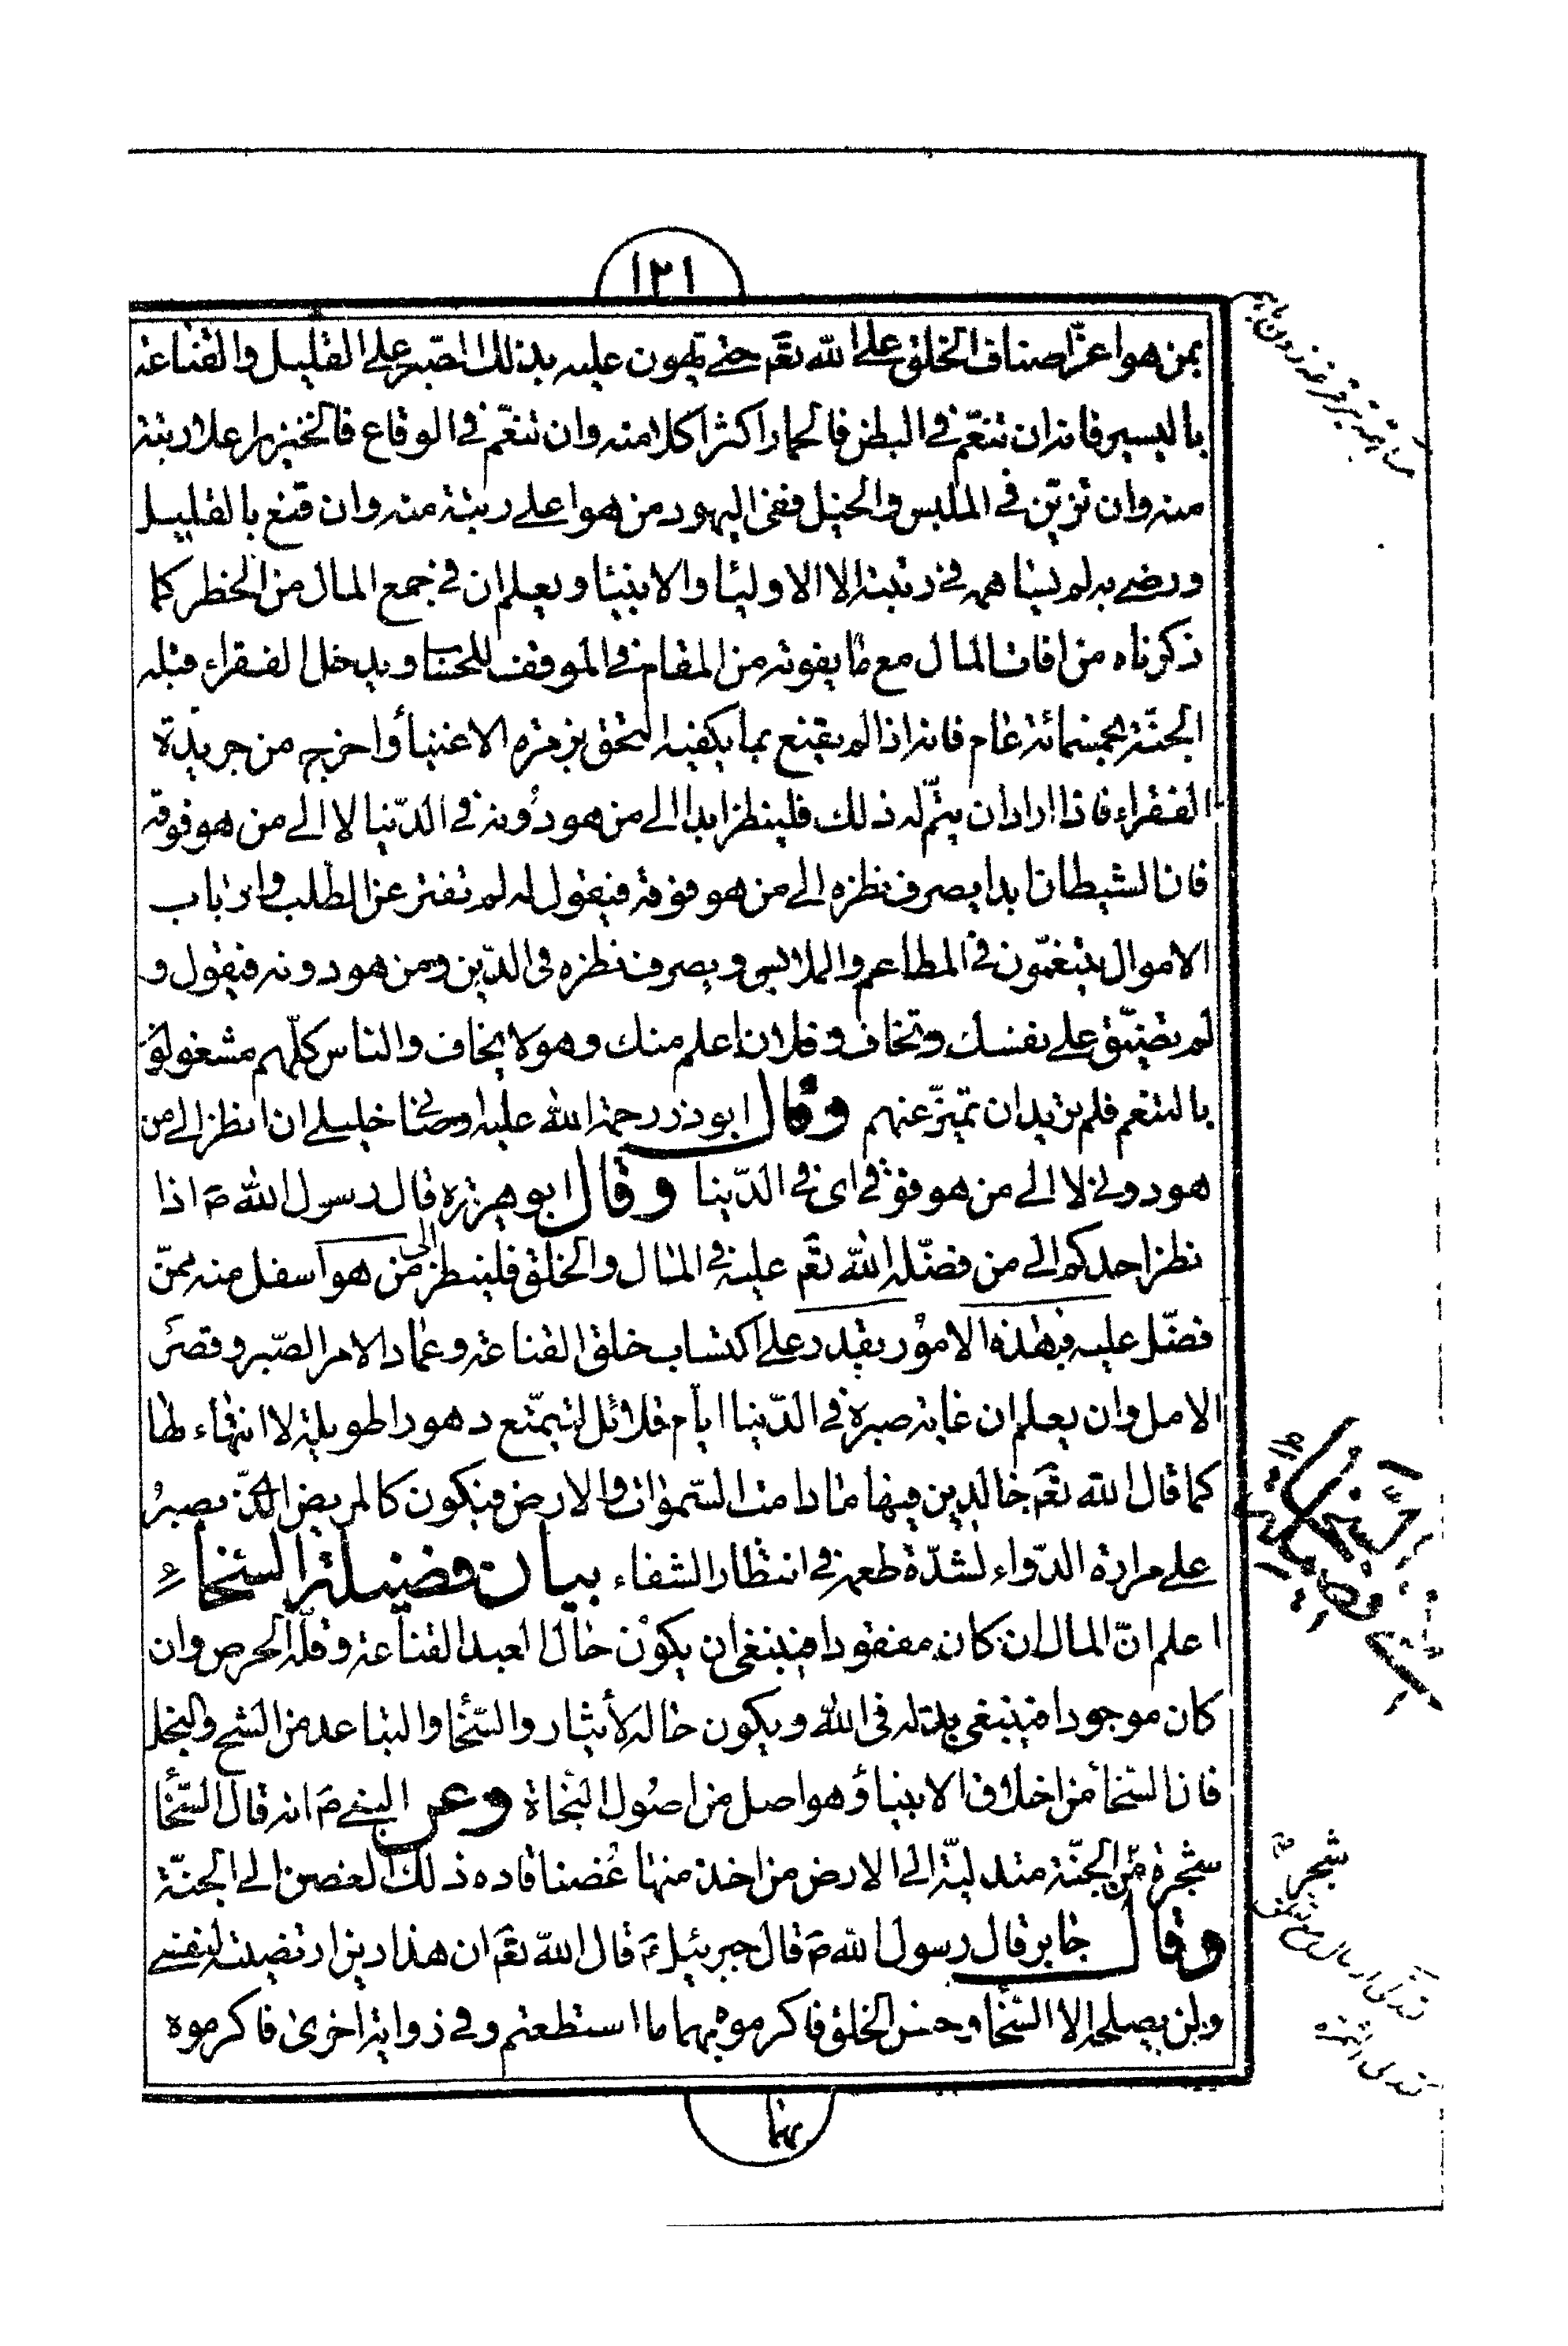 ١٢١
بمن هو اعزّ اصناف الخلق على الله تعَم حتى يهون عليه بذلك الصّبر على القليل والقناعة
باليسير فانه ان تنعّم في البطن فالحمار اكثر اكلا منه وان تنعّم في الوقاع فالخنزير اعلا رتبة
منه وان تزيّن في الملبس والخيل ففى اليهود من هو اعلى زينة منه وان قنع بالقليل
ورضى به لم يساهمه في رتبته الا الاوليا والانبيا ويعلم ان في جمع المال من الخطر كما
ذكرناه من افات المال مع ما يفوته من المقام في الموقف للحسنا ويدخل الفقراء قبله
الجنّة بخمسمائة عام فانه اذا لم يقنع بما يكفيه التحق بزمره الاغنيأ واخرج من جريدة
الفقراء فاذا اراد ان يتمّ له ذلك فلينظر ابدا الى من هو دُونه في الدّنيا لا الى من هو فوقه
فان الشيطان ابدا يصرف نظره الى من هو فوقه فيقول له لم تفتر عن الطلب وارباب
الاموال يتنعّمون في المطاعم والملابس ويصرف نظره فى الدّين ومن هو دونه فيقول و
لم تضيّق على نفسك وتخاف وفلان اعلم منك وهو لا يخاف والناس كلّهم مشغولو
بالتنعم فلم تريد ان تميّز عنهم وقال ابوذر رحمة الله عليه اوصانى خليلى ان انظر الى من
هو دونى لا الى من هو فوقى اى فى الدّينا وقال ابو هريره قال رسول الله صَ اذا
نظر احدكم الى من فضّله الله تعَم عليه في المال والخلق فلينظر الى من هو اسفل منه ممّن
فضّل عليه فبهذه الامُور يقدر على اكتساب خلق القناعة وعماد الامر الصّبر وقصرَ
الامل وان يعلم ان غاية صبره في الدّنيا ايام قلائل ليتمتّع دهورا طويلة لا انتهاء لها
كما قال الله تعَم خالدين فيها ما دامت السّموات والارض فيكون كالمريض الّذى يصبرُ
على مرارة الدّواء لشدّة طعمه في انتظار الشفاء بيان فضيلة السّخاء
اعلم انّ المال ان كان مفقودا فينبغى ان يكوْن حال العبد القناعة وقلّة الحرص وان
كان موجودا فينبغي بذله فى الله ويكون حاله الأيثار والسّخا والتباعد من الشح والبخل
فان السّخأ من اخلاق الانبيأ وهو اصل من اصُول النجاة وعن النبي صَ انه قال السّخأ
شجرة من الجنّة متدلية الى الارض من اخذ منها غُصنا قاده ذلك الغصن الى الجنّة
وقال جابر قال رسول الله صَ قال جبرئيل عَ قال الله تعَم ان هذا دين ارتضيته لنفسى
ولن يصلحه الا السّخأ وحسن الخلق فاكرموه بهما ما استطعتم وفي رواية اخرى فاكرموه
بهما